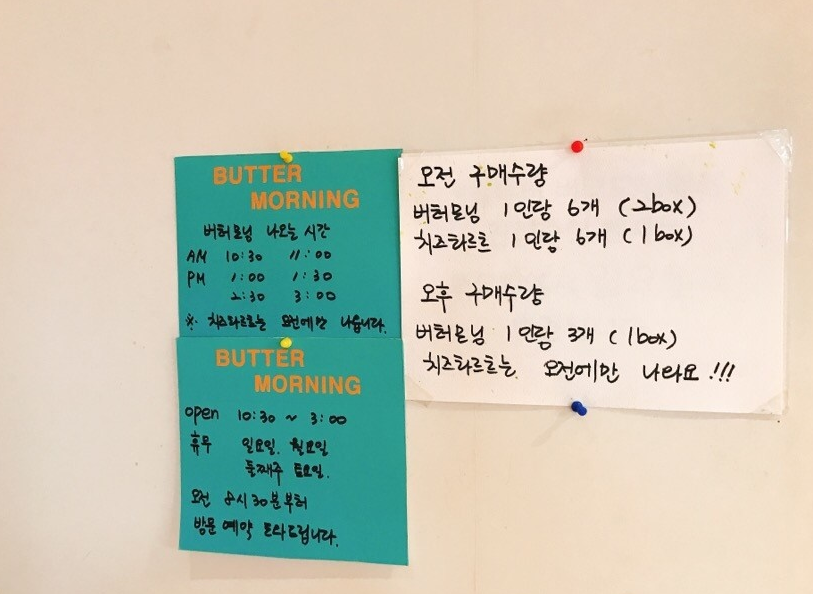 BUTTER
MORNING
버터모닝 나오는 시간
AM 10:30 11:00
PM 1:00 1:30
2:30 3:00
※ 치즈타르트는 오전에만 나옵니다.
BUTTER
MORNING
open 10:30 ~ 3:00
휴무 일요일. 월요일
둘째주 토요일.
오전 8시 30분부터
방문예약 도와드립니다.
오전 구매수량
버터모닝 1인당 6개 (2box)
치즈타르트 1인당 6개 (1box)
오후 구매수량
버터모닝 1인당 3개 (1box)
치즈타르트는 오전에만 나와요!!!